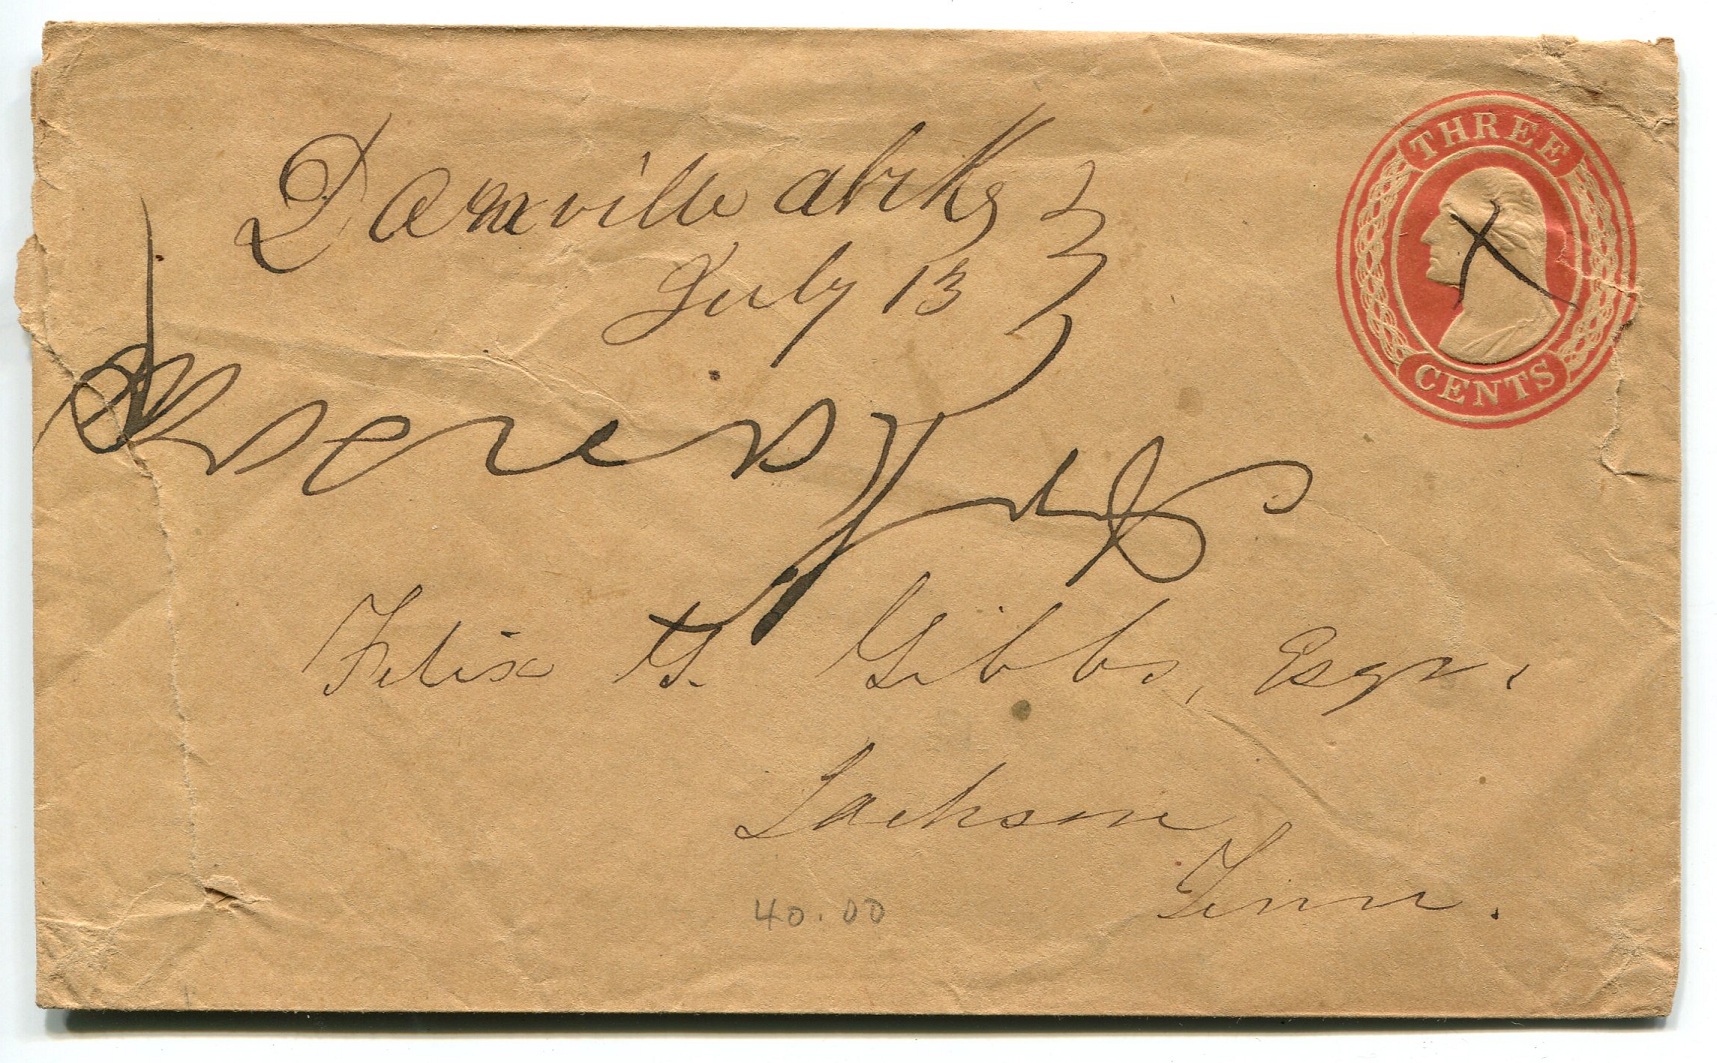 THREE
CENTS
Danville
July 13
Felix G. Gibbs, Esqr.
Jackson
Tenn.
40.00